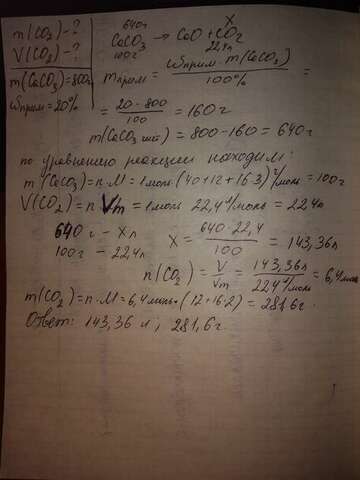 m(CO₂) - ?
V(CO₂) - ?
m(CaCO₃) = 800г
ωприм = 20%
640г X
CaCO₃ → CaO + CO₂
100г 22,4л
mприм = ωприм · m(CaCO₃) / 100% =
= 20 · 800 / 100 = 160г
m(CaCO₃ чист) = 800 - 160 = 640г
по уравнению реакции находим:
m (CaCO₃) = n · M = 1моль (40+12+16·3) г/моль = 100г
V(CO₂) = n · Vm = 1моль 22,4 л/моль = 22,4л
640 г - X л
100 г - 22,4л
X = 640 · 22,4 / 100 = 143,36л
n(CO₂) = V / Vm = 143,36л / 22,4 л/моль = 6,4 моль
m(CO₂) = n · M = 6,4 моль · (12+16·2) = 281,6г.
Ответ: 143,36 л ; 281,6г.